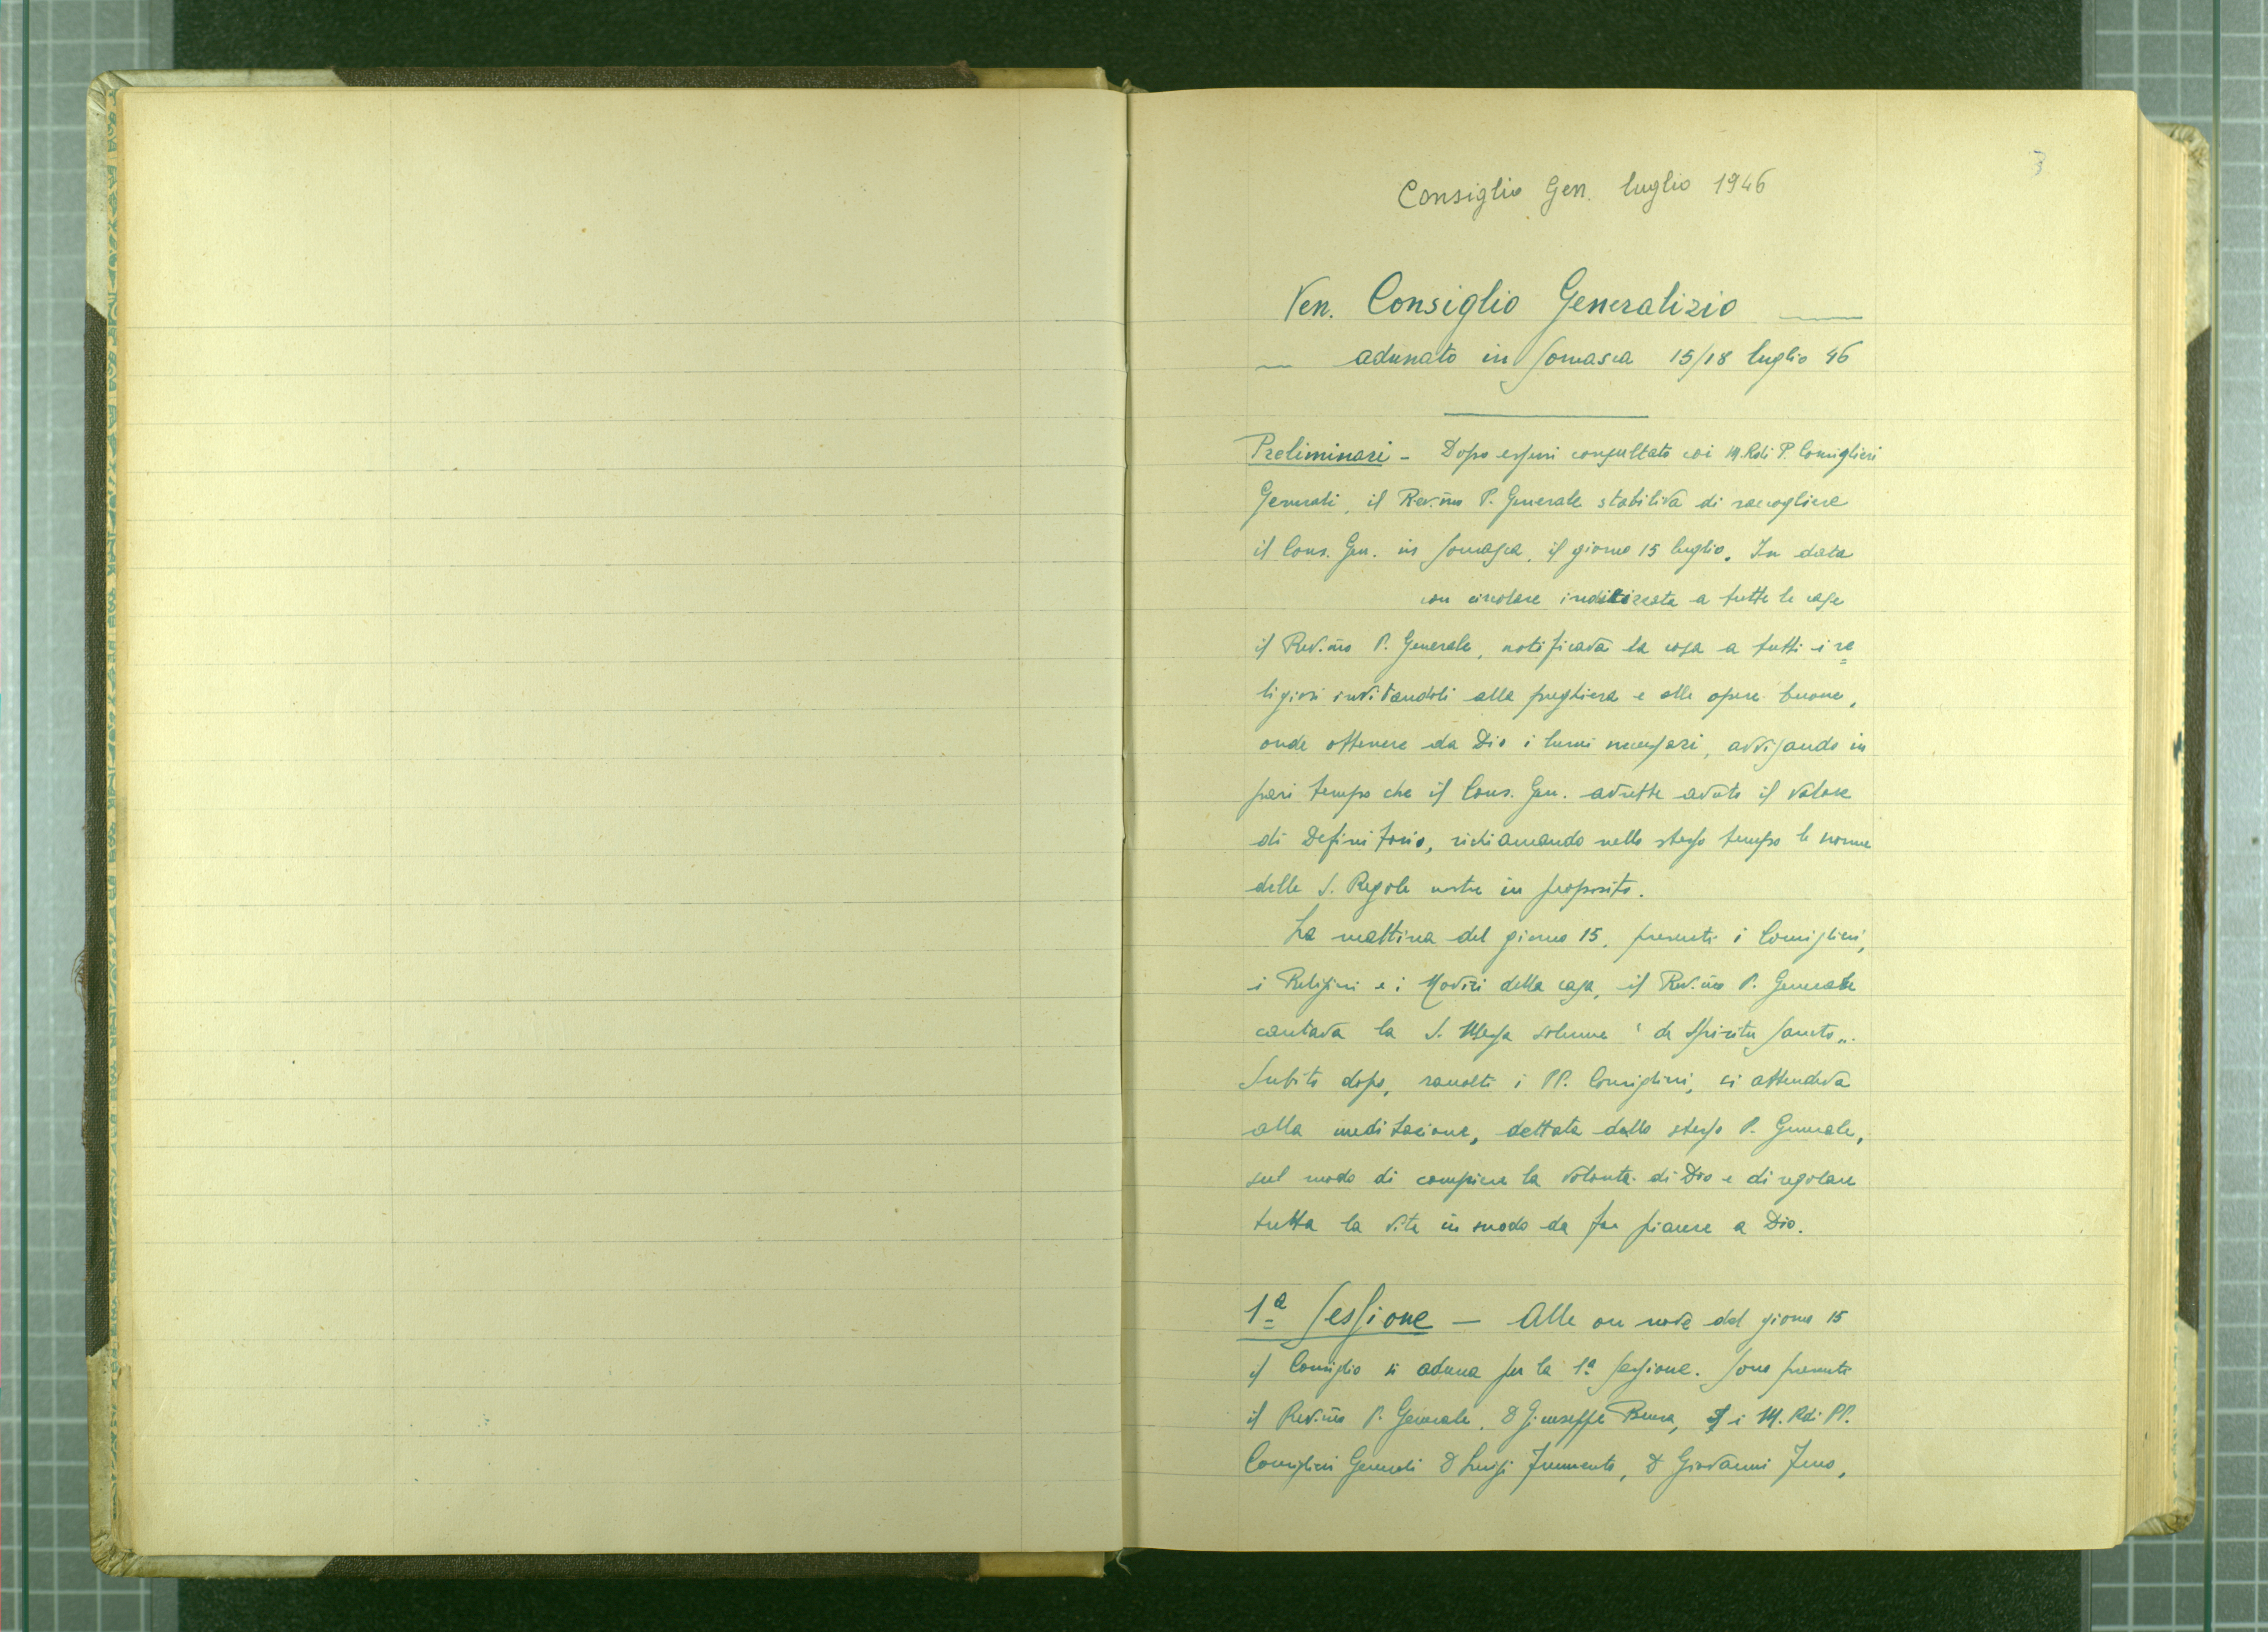 3
Consiglio Gen. luglio 1946
Ven. Consiglio Generalizio
adunato in Somasca 15/18 luglio 46
Preliminari - Dopo essersi consultato coi M. Rdi P. Consiglieri
Generali, il Rev.mo P. Generale stabiliva di raccogliere
il Cons. Gen. in Somasca, il giorno 15 luglio. In data
con circolare indirizzata a tutte le case
il Rev.mo P. Generale, notificava la cosa a tutti i re=
ligiosi invitandoli alla preghiera e alle opere buone,
onde ottenere da Dio i lumi necessari, avvisando in
pari tempo che il Cons. Gen. avrebbe avuto il valore
di Definitorio, richiamando nello stesso tempo le norme
delle S. Regole nostre in proposito.
La mattina del giorno 15, presenti i Consiglieri,
i Religiosi e i Novizi della casa, il Rev.mo P. Generale
cantava la S. Messa solenne "de Spiritu Sancto".
Subito dopo, raccolti i PP. Consiglieri, si attendeva
alla meditazione, dettata dallo stesso P. Generale,
sul modo di compiere la volontà di Dio e di regolare
tutta la vita in modo da far piacere a Dio.
1ª Sessione - Alle ore nove del giorno 15
il Consiglio si aduna per la 1ª sessione. Sono presenti
il Rev.mo P. Generale, D Giuseppe Brusa, i M. Rdi PP.
Consiglieri Generali D Luigi Frumento, D Giovanni